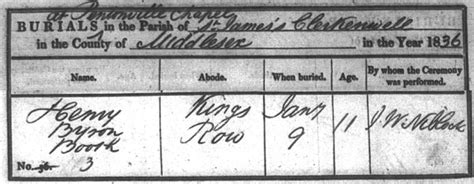 at Pentonville Chapel
BURIALS in the Parish of St. James's Clerkenwell
in the County of Middlesex in the Year 1836
Name. Abode. When buried. Age. By whom the Ceremony was performed.
Henry Kings Jany
Byron Row 9 11 J. W.
Boosk
No. 3